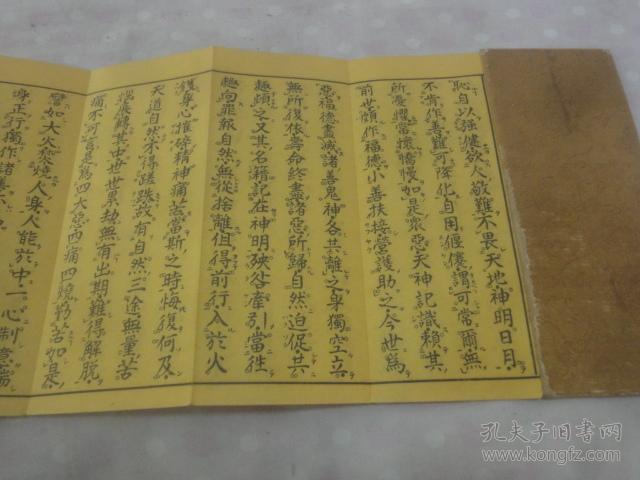 恥自以強健欲人敬難不畏天地神明日月
不肯作善難可降化自用偃僂謂可常爾無
所憂懼常懷憍慢如是衆惡天神記識賴其
前世頗作福德小善扶接營護助之今世為
惡福德盡滅諸善鬼神各共離之身獨空立
無所復依壽命終盡諸惡所歸自然迫促共
趣頓之又其名籍記在神明殃咎牽引當往
趣向罪報自然無從捨離但得前行入於火
鑊身心摧碎精神痛苦當斯之時悔復何及
天道自然不得蹉跌故有自然三途無量苦
惱展轉其中世世累劫無有出期難得解脫
痛不可言是為四大惡四痛四燒勤苦如是
譬如大火焚燒人身人能於中一心制意端
身正行獨作諸善不
孔夫子旧書网
kongfz.com